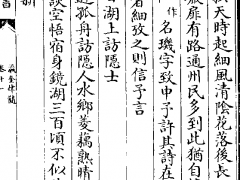 天時起細風清陰花落後長
扉有路通州民多到此猶自
作 名璣字致中予許其詩在
者細攷之則信予言
湖上訪隱士
近孤舟訪隱人水鄉菱藕熟晴
談空悟宿身鏡湖三百頃不似
瀛奎律髓